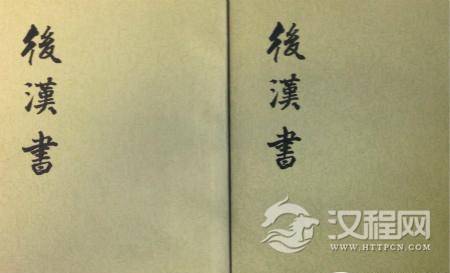 後漢書
後漢書
汉程网
WWW.HTTPCN.COM